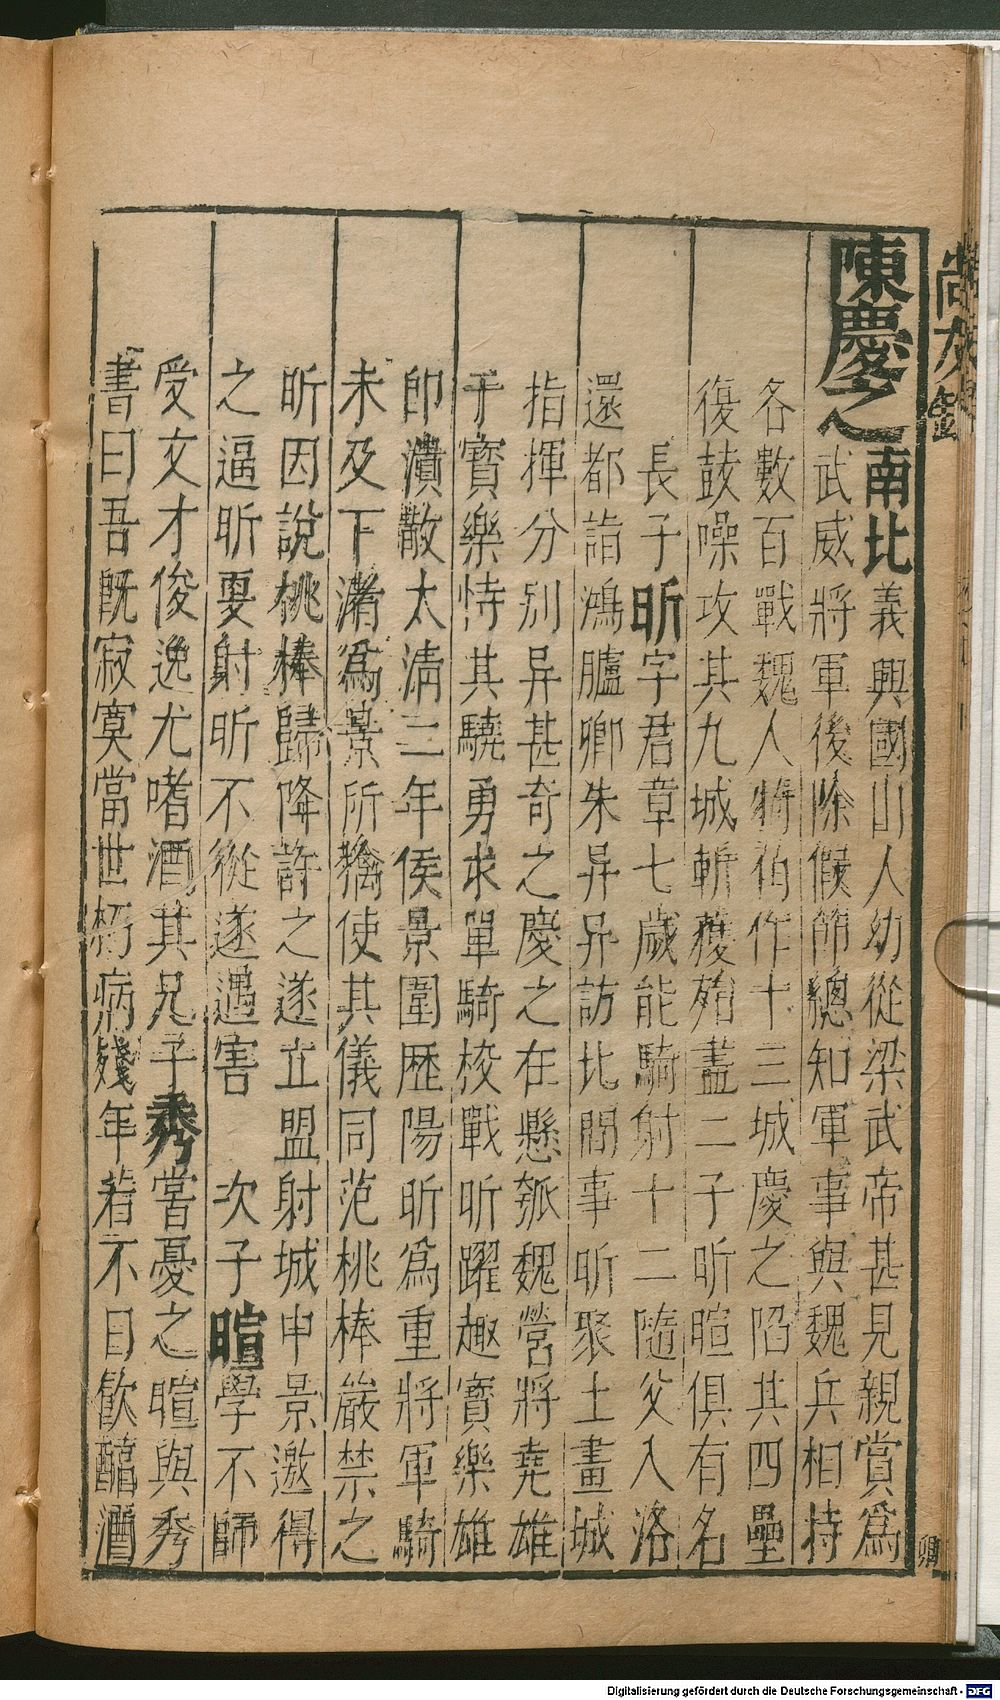 尚友錄
陳慶之南北義興國山人幼從梁武帝甚見親賞爲
武威將軍後除假節總知軍事與魏兵相持
各數百戰魏人將伯作十三城慶之陷其四壘
復鼓噪攻其九城斬獲殆盡二子昕暄俱有名
長子昕字君章七歲能騎射十二隨父入洛
還都詣鴻臚卿朱异异訪北間事昕聚土畫城
指揮分别异甚奇之慶之在懸瓠魏營將堯雄
子寶樂恃其驍勇求單騎校戰昕躍趣寶樂雄
卽潰散太清二年侯景圍歷陽昕爲重將軍騎
未及下渚爲景所擒使其儀同范桃棒嚴禁之
昕因說桃棒歸降許之遂立盟射城中景邀得
之逼昕要射昕不從遂遇害　次子暄學不師
受文才俊逸尤嗜酒其兄子秀嘗憂之暄與秀
書曰吾旣寂寞當世朽病殘年若不日飲醽酒
Digitalisierung gefördert durch die Deutsche Forschungsgemeinschaft - DFG